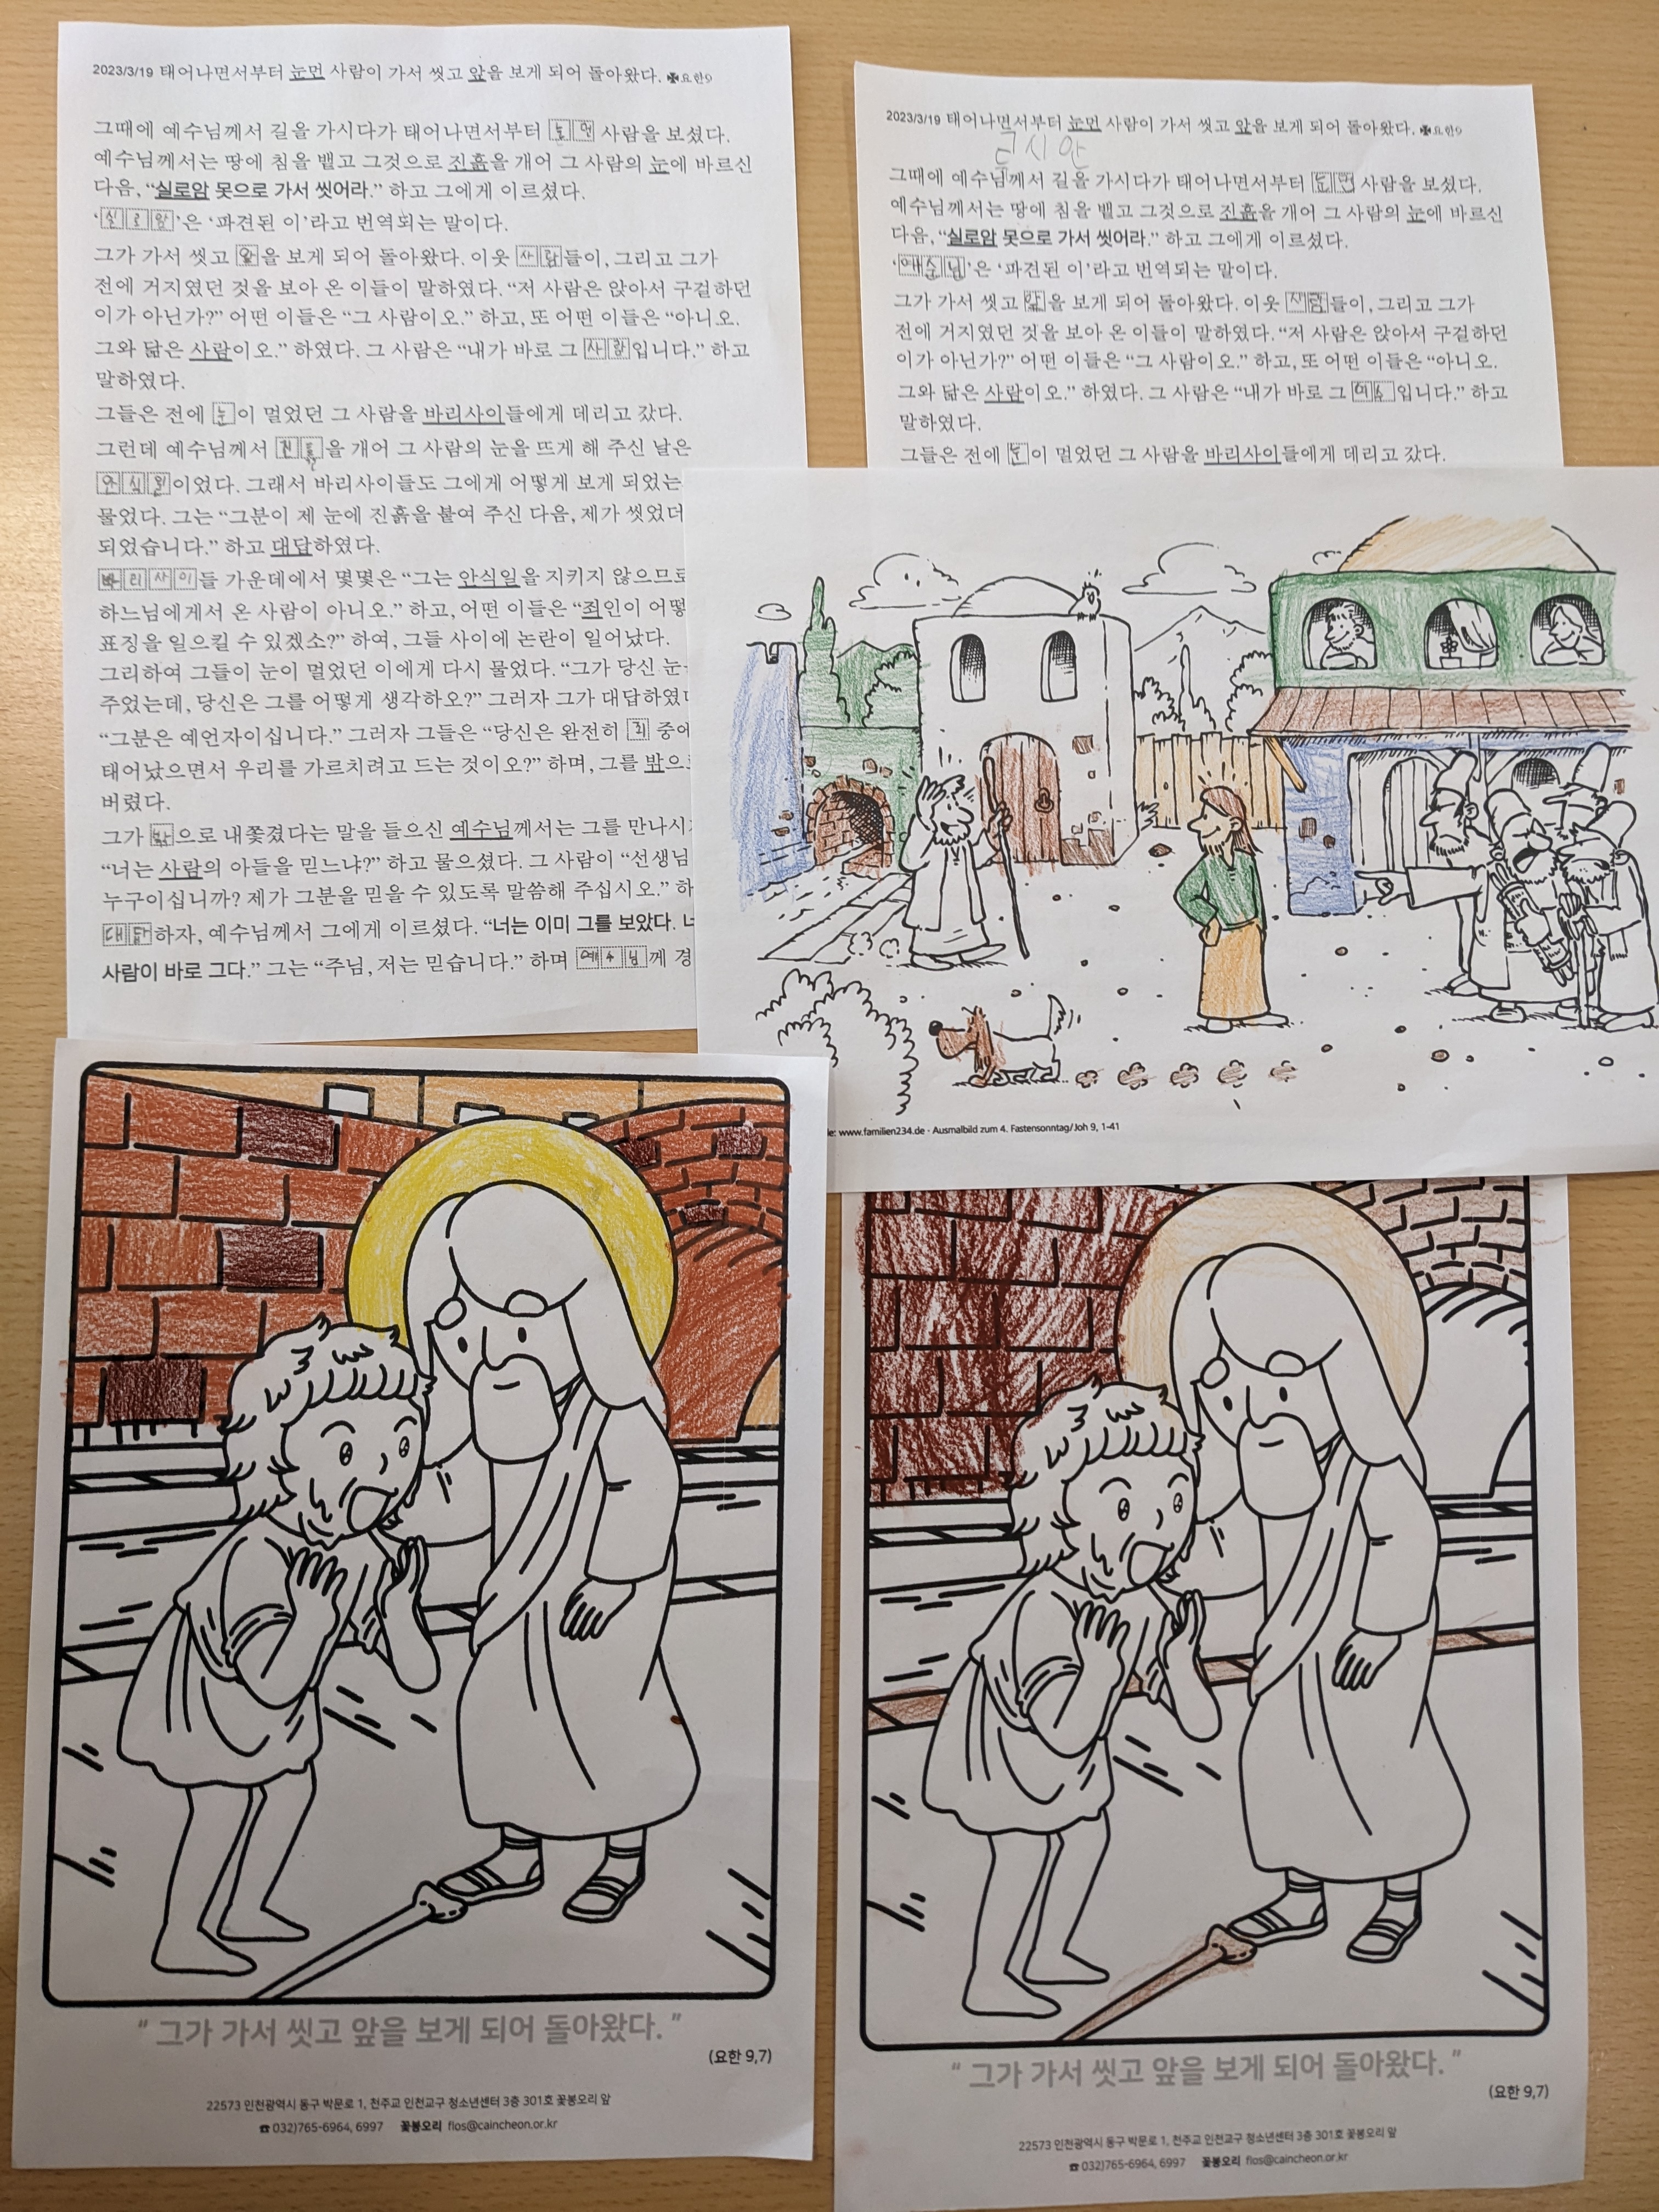 2023/3/19 태어나면서부터 눈먼 사람이 가서 씻고 앞을 보게 되어 돌아왔다. ✠요한9
그때에 예수님께서 길을 가시다가 태어나면서부터 눈먼 사람을 보셨다.
예수님께서는 땅에 침을 뱉고 그것으로 진흙을 개어 그 사람의 눈에 바르신
다음, “실로암 못으로 가서 씻어라.” 하고 그에게 이르셨다.
‘실로암’은 ‘파견된 이’라고 번역되는 말이다.
그가 가서 씻고 앞을 보게 되어 돌아왔다. 이웃 사람들이, 그리고 그가
전에 거지였던 것을 보아 온 이들이 말하였다. “저 사람은 앉아서 구걸하던
이가 아닌가?” 어떤 이들은 “그 사람이오.” 하고, 또 어떤 이들은 “아니오.
그와 닮은 사람이오.” 하였다. 그 사람은 “내가 바로 그 사람입니다.” 하고
말하였다.
그들은 전에 눈이 멀었던 그 사람을 바리사이들에게 데리고 갔다.
그런데 예수님께서 진흙을 개어 그 사람의 눈을 뜨게 해 주신 날은
안식일이었다. 그래서 바리사이들도 그에게 어떻게 보게 되었는
물었다. 그는 “그분이 제 눈에 진흙을 붙여 주신 다음, 제가 씻었더
되었습니다.” 하고 대답하였다.
바리사이들 가운데에서 몇몇은 “그는 안식일을 지키지 않으므로
하느님에게서 온 사람이 아니오.” 하고, 어떤 이들은 “죄인이 어떻
표징을 일으킬 수 있겠소?” 하여, 그들 사이에 논란이 일어났다.
그리하여 그들이 눈이 멀었던 이에게 다시 물었다. “그가 당신 눈
주었는데, 당신은 그를 어떻게 생각하오?” 그러자 그가 대답하였
“그분은 예언자이십니다.” 그러자 그들은 “당신은 완전히 죄 중에
태어났으면서 우리를 가르치려고 드는 것이오?” 하며, 그를 밖으
버렸다.
그가 밖으로 내쫓겼다는 말을 들으신 예수님께서는 그를 만나시
“너는 사람의 아들을 믿느냐?” 하고 물으셨다. 그 사람이 “선생님
누구이십니까? 제가 그분을 믿을 수 있도록 말씀해 주십시오.” 하
대답하자, 예수님께서 그에게 이르셨다. “너는 이미 그를 보았다. 너
사람이 바로 그다.” 그는 “주님, 저는 믿습니다.” 하며 예수님께 경
2023/3/19 태어나면서부터 눈먼 사람이 가서 씻고 앞을 보게 되어 돌아왔다. ✠요한9
그때에 예수님께서 길을 가시다가 태어나면서부터 눈먼 사람을 보셨다.
예수님께서는 땅에 침을 뱉고 그것으로 진흙을 개어 그 사람의 눈에 바르신
다음, “실로암 못으로 가서 씻어라.” 하고 그에게 이르셨다.
‘예수님’은 ‘파견된 이’라고 번역되는 말이다.
그가 가서 씻고 앞을 보게 되어 돌아왔다. 이웃 사람들이, 그리고 그가
전에 거지였던 것을 보아 온 이들이 말하였다. “저 사람은 앉아서 구걸하던
이가 아닌가?” 어떤 이들은 “그 사람이오.” 하고, 또 어떤 이들은 “아니오.
그와 닮은 사람이오.” 하였다. 그 사람은 “내가 바로 그 예수입니다.” 하고
말하였다.
그들은 전에 눈이 멀었던 그 사람을 바리사이들에게 데리고 갔다.
le: www.familien234.de · Ausmalbild zum 4. Fastensonntag/Joh 9, 1-41
“ 그가 가서 씻고 앞을 보게 되어 돌아왔다. ”
(요한 9,7)
22573 인천광역시 동구 박문로 1, 천주교 인천교구 청소년센터 3층 301호 꽃봉오리 앞
☎ 032)765-6964, 6997 꽃봉오리 flos@caincheon.or.kr
“ 그가 가서 씻고 앞을 보게 되어 돌아왔다. ”
(요한 9,7)
22573 인천광역시 동구 박문로 1, 천주교 인천교구 청소년센터 3층 301호 꽃봉오리 앞
☎ 032)765-6964, 6997 꽃봉오리 flos@caincheon.or.kr